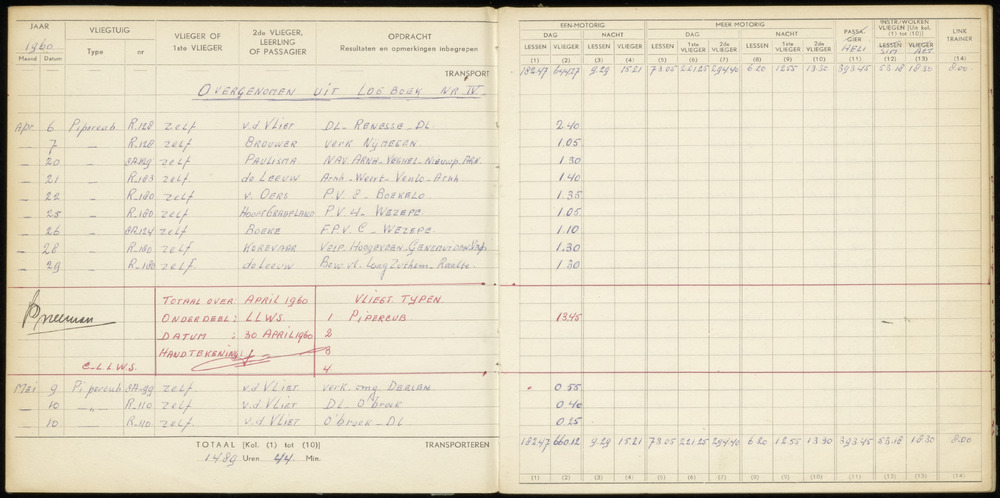 JAAR 1960 Maand Datum
VLIEGTUIG Type nr
VLIEGER OF 1ste VLIEGER
2de VLIEGER, LEERLING OF PASSAGIER
OPDRACHT Resultaten en opmerkingen inbegrepen
EEN-MOTORIG MEER MOTORIG
DAG NACHT DAG NACHT
LESSEN VLIEGER LESSEN VLIEGER LESSEN 1ste VLIEGER 2de VLIEGER LESSEN 1ste VLIEGER 2de VLIEGER
PASSAGIER HELI
INSTR./WOLKEN VLIEGEN [Un kol. (1) tot (10)] LESSEN SIM VLIEGER
LINK TRAINER
(1) (2) (3) (4) (5) (6) (7) (8) (9) (10) (11) (12) (13) (14)
TRANSPORT 182.47 644.27 9.29 15.21 73.05 221.25 294.40 6.20 12.55 13.30 393.45 53.18 18.30 8.00
OVERGENOMEN UIT LOGBOEK NR. IV.
Apr. 6 Pipercub. R.128 zelf v.d Vliet DL - RENESSE - DL 2.40
— 7 — R.128 zelf BROUWER verk NYMEGEN 1.05
— 20 — zelf PAULISMA NAV. ARNH - VEGHEL - 1.30
— 21 — R.163 zelf de LEEUW Arnh - Weert - Venlo - Arnh 1.40
— 22 — R.180 zelf v. OERS P.V. 8 - BOEKELO 1.35
— 25 — R.180 zelf P.V. 4 - WEZEPE 1.05
— 26 — zelf BOEKE F.P.V. C - WEZEPE. 1.10
— 28 — R.180 zelf KOREVAAR 1.30
— 29 — R.180 zelf. de Leeuw Raalte. 1.30
TOTAAL OVER APRIL 1960 VLIEGT. TYPEN
ONDERDEEL: LLWS. 1 PIPERCUB 13.45
DATUM : 30 APRIL 1960 2
HANDTEKENING: 3
C-L.L.W.S. 4
Mei 9 Pipercub zelf. v.d. VLIET verk. omg DEELEN 0.55
— 10 —„— R.110 zelf v.d. VLIET DL - O'broek 0.40
— 10 R.110 zelf v.d. VLIET O'broek - DL 0.25
TOTAAL [Kol. (1) tot (10)] TRANSPORTEREN 182.47 660.12 9.29 15.21 73.05 221.25 294.40 6.20 12.55 13.30 393.45 53.18 18.30 8.00
1489 Uren 44 Min.
(1) (2) (3) (4) (5) (6) (7) (8) (9) (10) (11) (12) (13) (14)